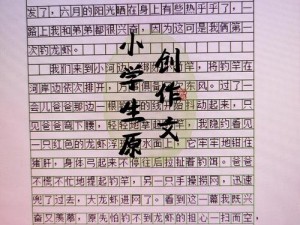 发了，六月的阳光晒在身上有些热乎乎了，一
路上我和弟弟都很兴奋，因为这可是我俩第
次钓龙虾。
我们来到小河边
竿，将钓竿在
河岸边依次排开，
东风。过了一
会儿爸爸那边一根
抖动起来，只
见爸爸弯下腰，轻轻
我隐约看见
一只红色的龙虾浮
水面上，它牢牢地钳住
猪肝，身体弓起来不停往后拉扯着钓饵。爸爸
不慌不忙地提起钓竿，另一只手操捞网，迅速
兜了过去，大龙虾进网了。看到这一幕我既兴
奋又羡慕，原先怕钓不到龙虾的担心一扫而空，
小学生原
创作文